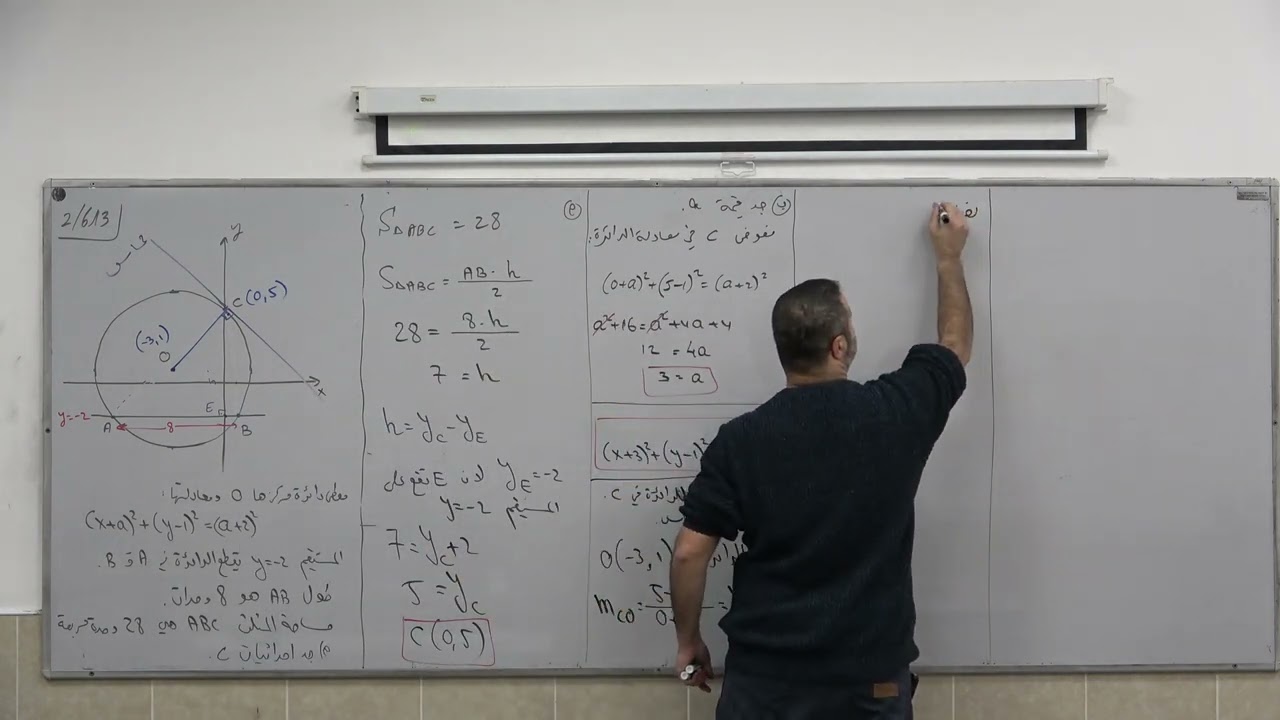 2/613
y
C(0,5)
(-3,1)
O
x
y=-2
E
A
8
B
معطى دائرة مركزها O ومعادلتها:
(x+a)²+(y-1)²=(a+2)²
المستقيم y=-2 يقطع الدائرة في A و B.
طول AB هو 8 وحدات.
مساحة المثلث ABC هي 28 وحدة مربعة
جد احداثيات C.
S△ABC = 28
S△ABC = AB·h/2
28 = 8·h/2
7 = h
h = yC - yE
yE = -2 لان E تقع على
المستقيم y=-2
7 = yC+2
5 = yC
C(0,5)
ب جد قيمة a.
نعوض C في معادلة الدائرة:
(0+a)²+(5-1)²=(a+2)²
a²+16=a²+4a+4
12 = 4a
3 = a
(x+3)²+(y-1)²
في C.
O(-3,1)
mCO =